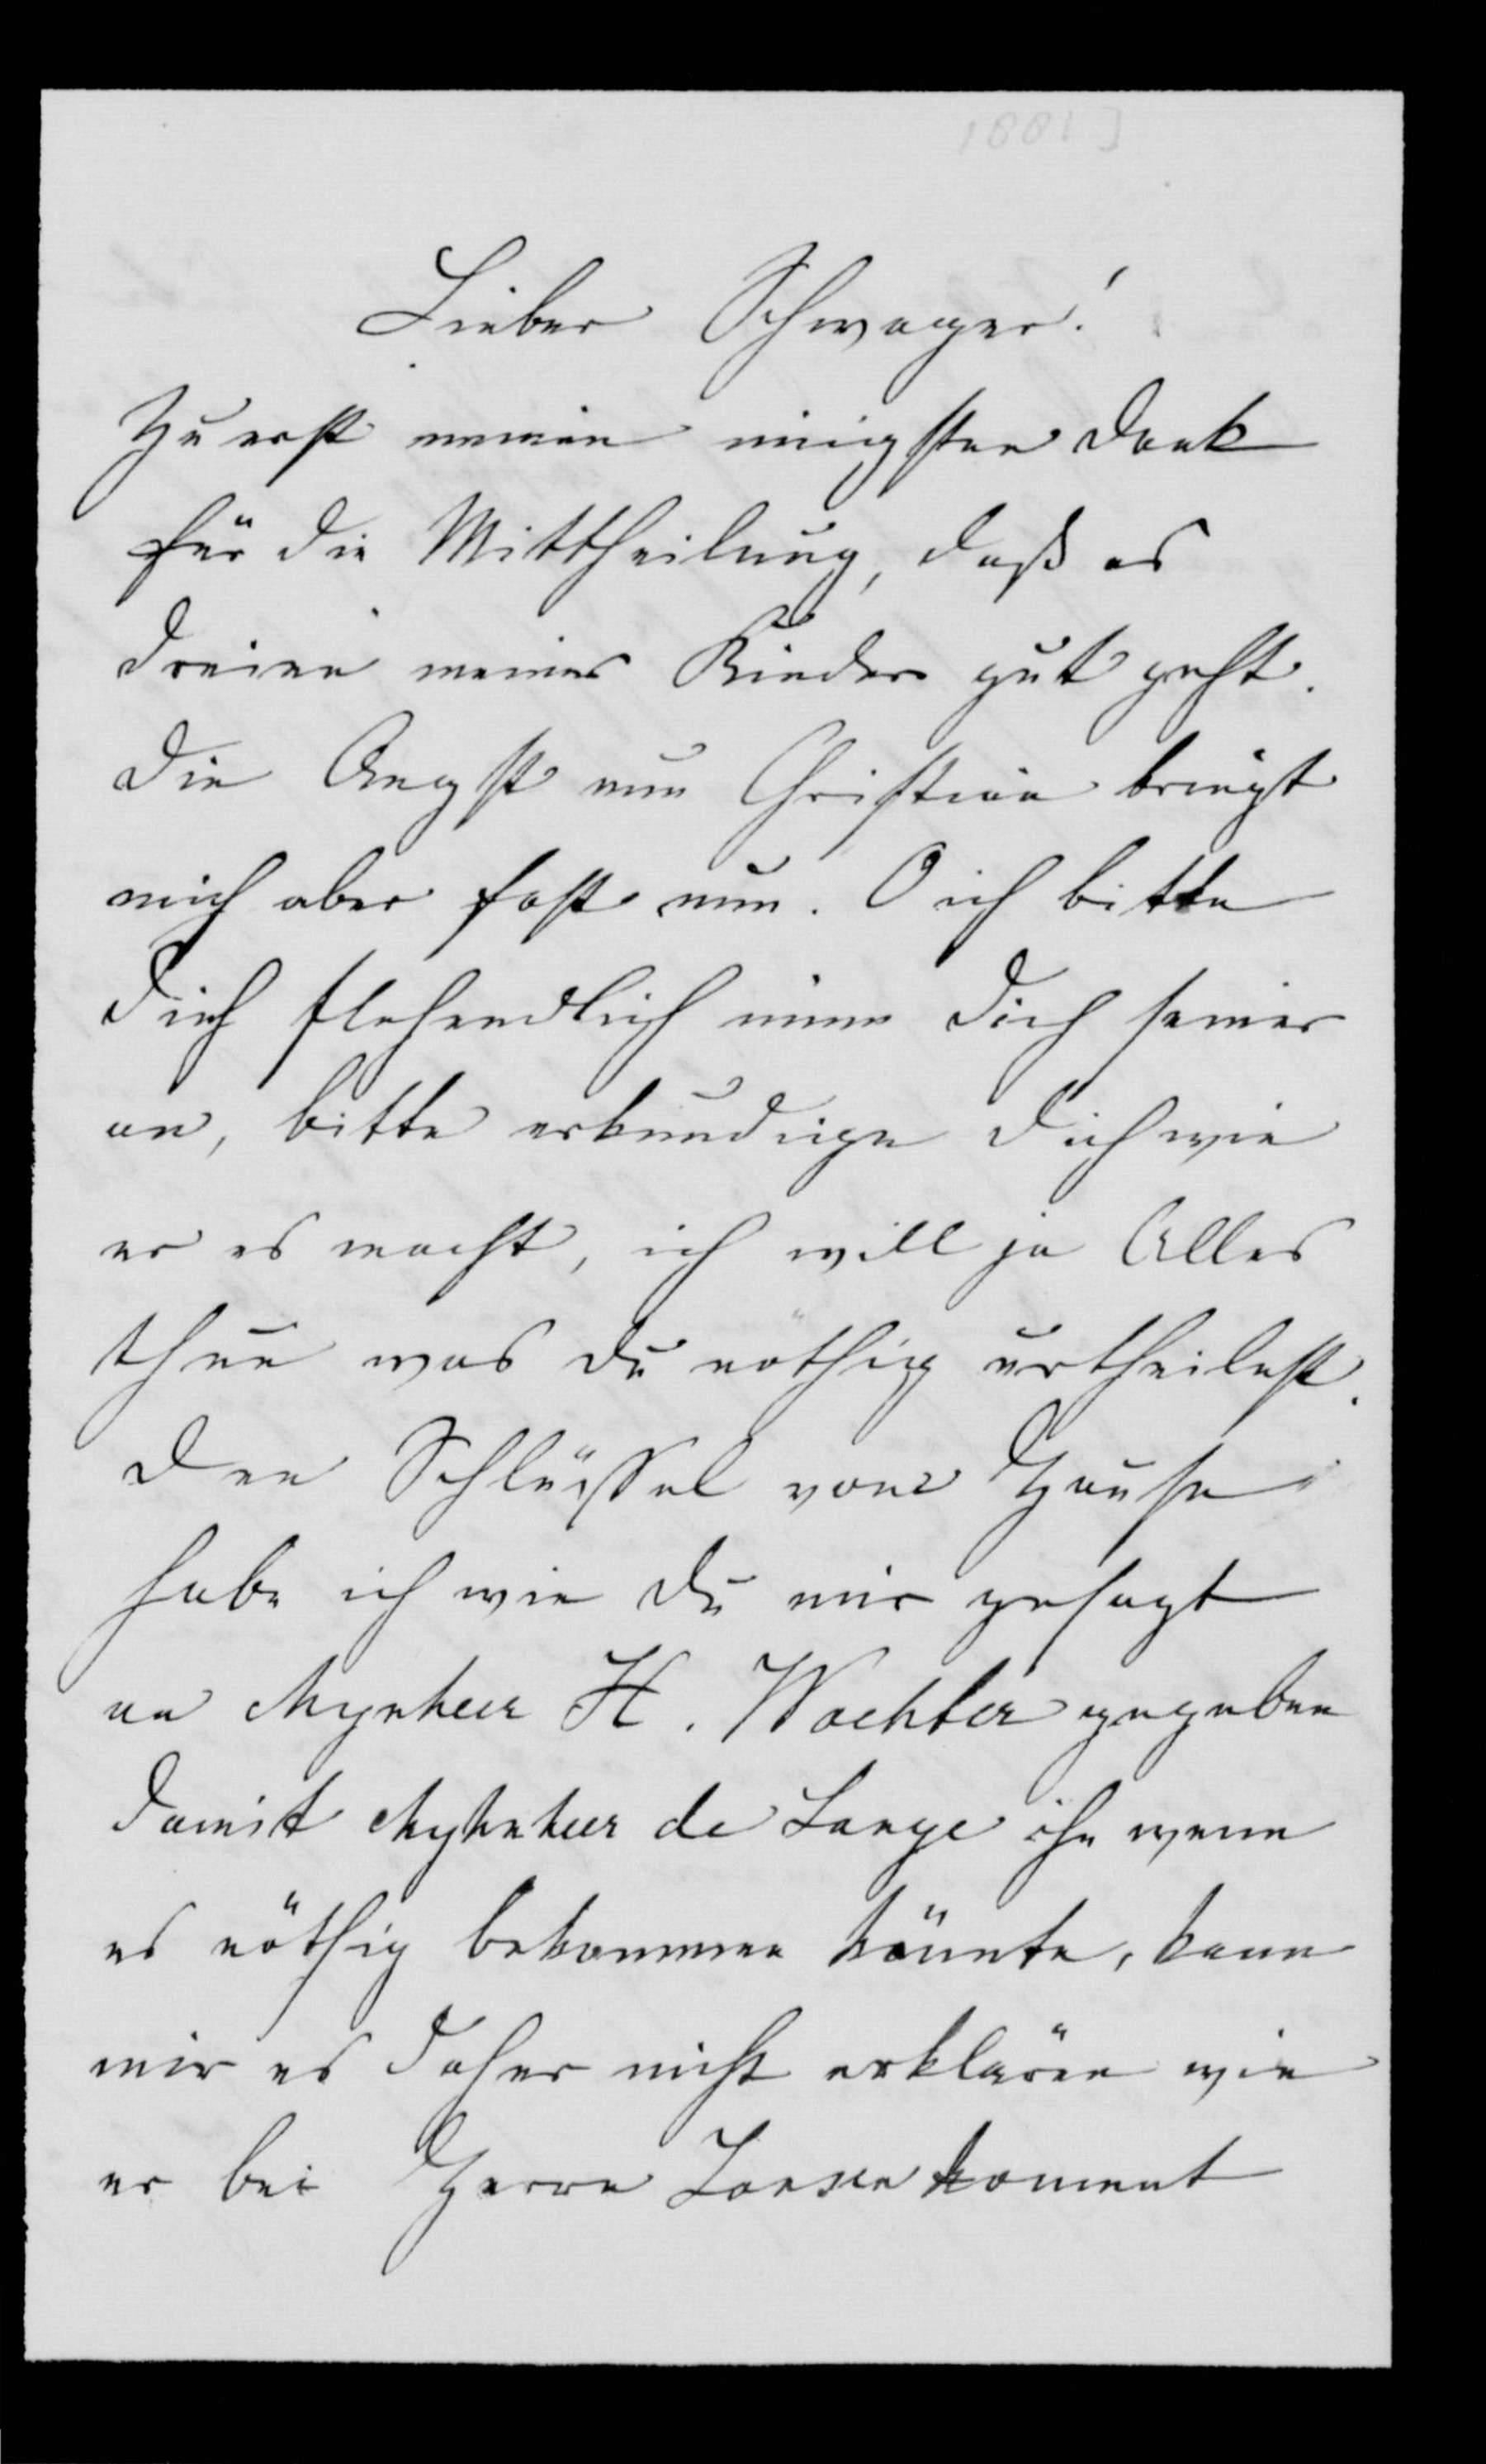 Lieber Schwager!
Zuerst meinen innigsten Dank
für die Mittheilung, daß es
dreien meiner Kinder gut geht.
Die Angst um Christian bringt
mich aber fast um. O ich bitte
Dich flehendlich nimm Dich seiner
an, bitte erkundige Dich wie
er es macht, ich will ja Alles
thun was Du nöthig urtheilest.
Den Schlüssel vom Hause
habe ich wie Du mir gesagt
an Mynheer H. Wachter gegeben
damit Mynheer de Lange ihn wenn
es nöthig bekommen könnte, kann
mir es daher nicht erklären wie
er bei Herrn kommt